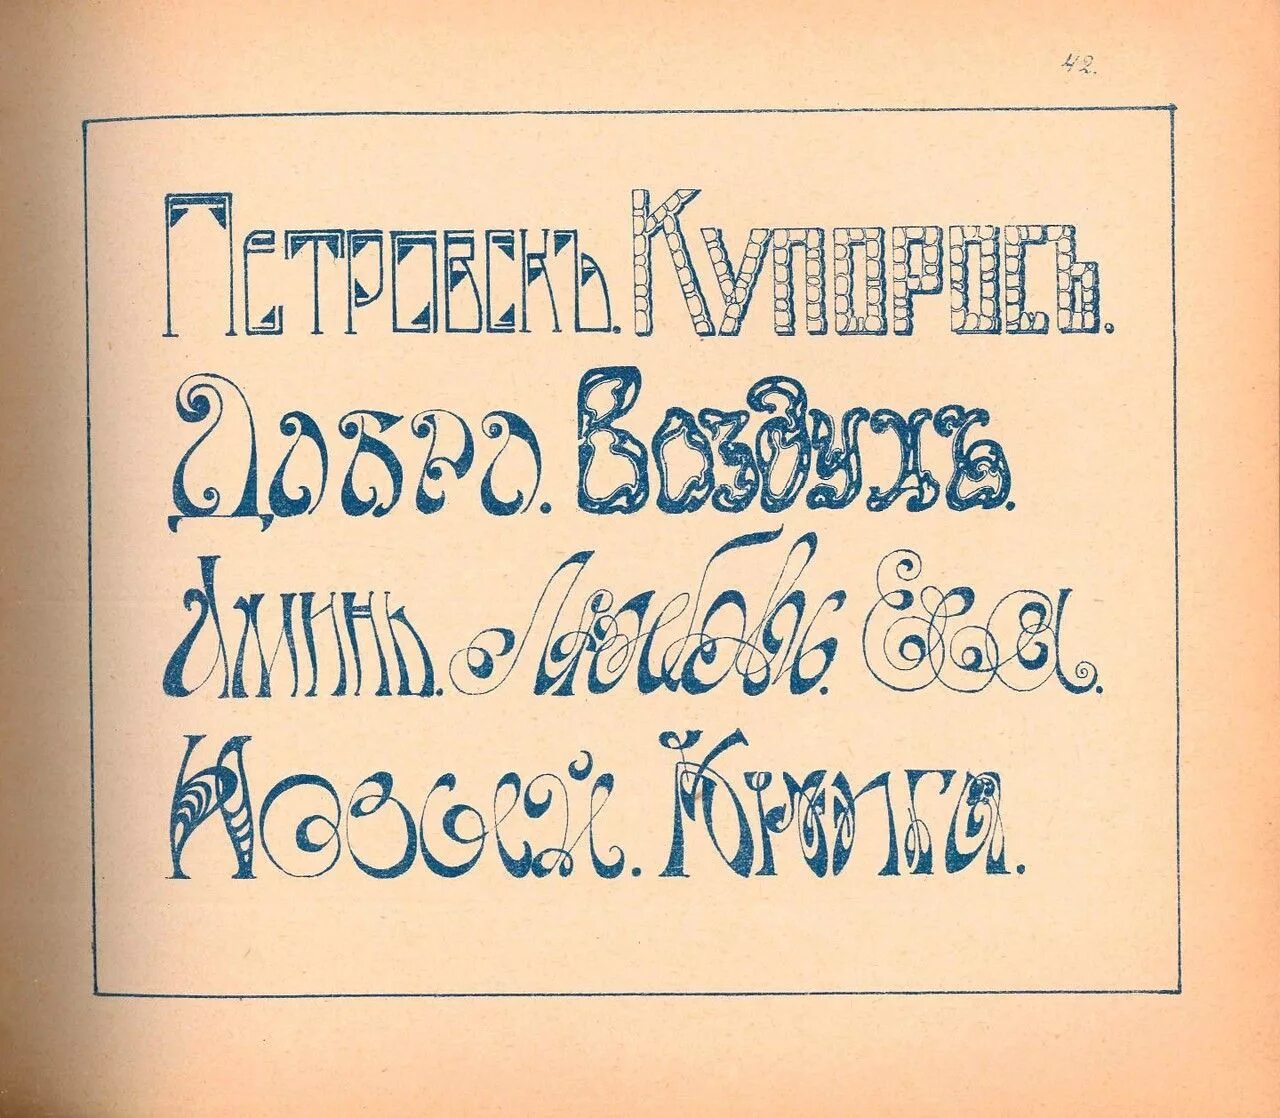 42.
Петровскъ. Купоросъ.
Добро. Воздухъ.
Аминь. Любовь. Ева.